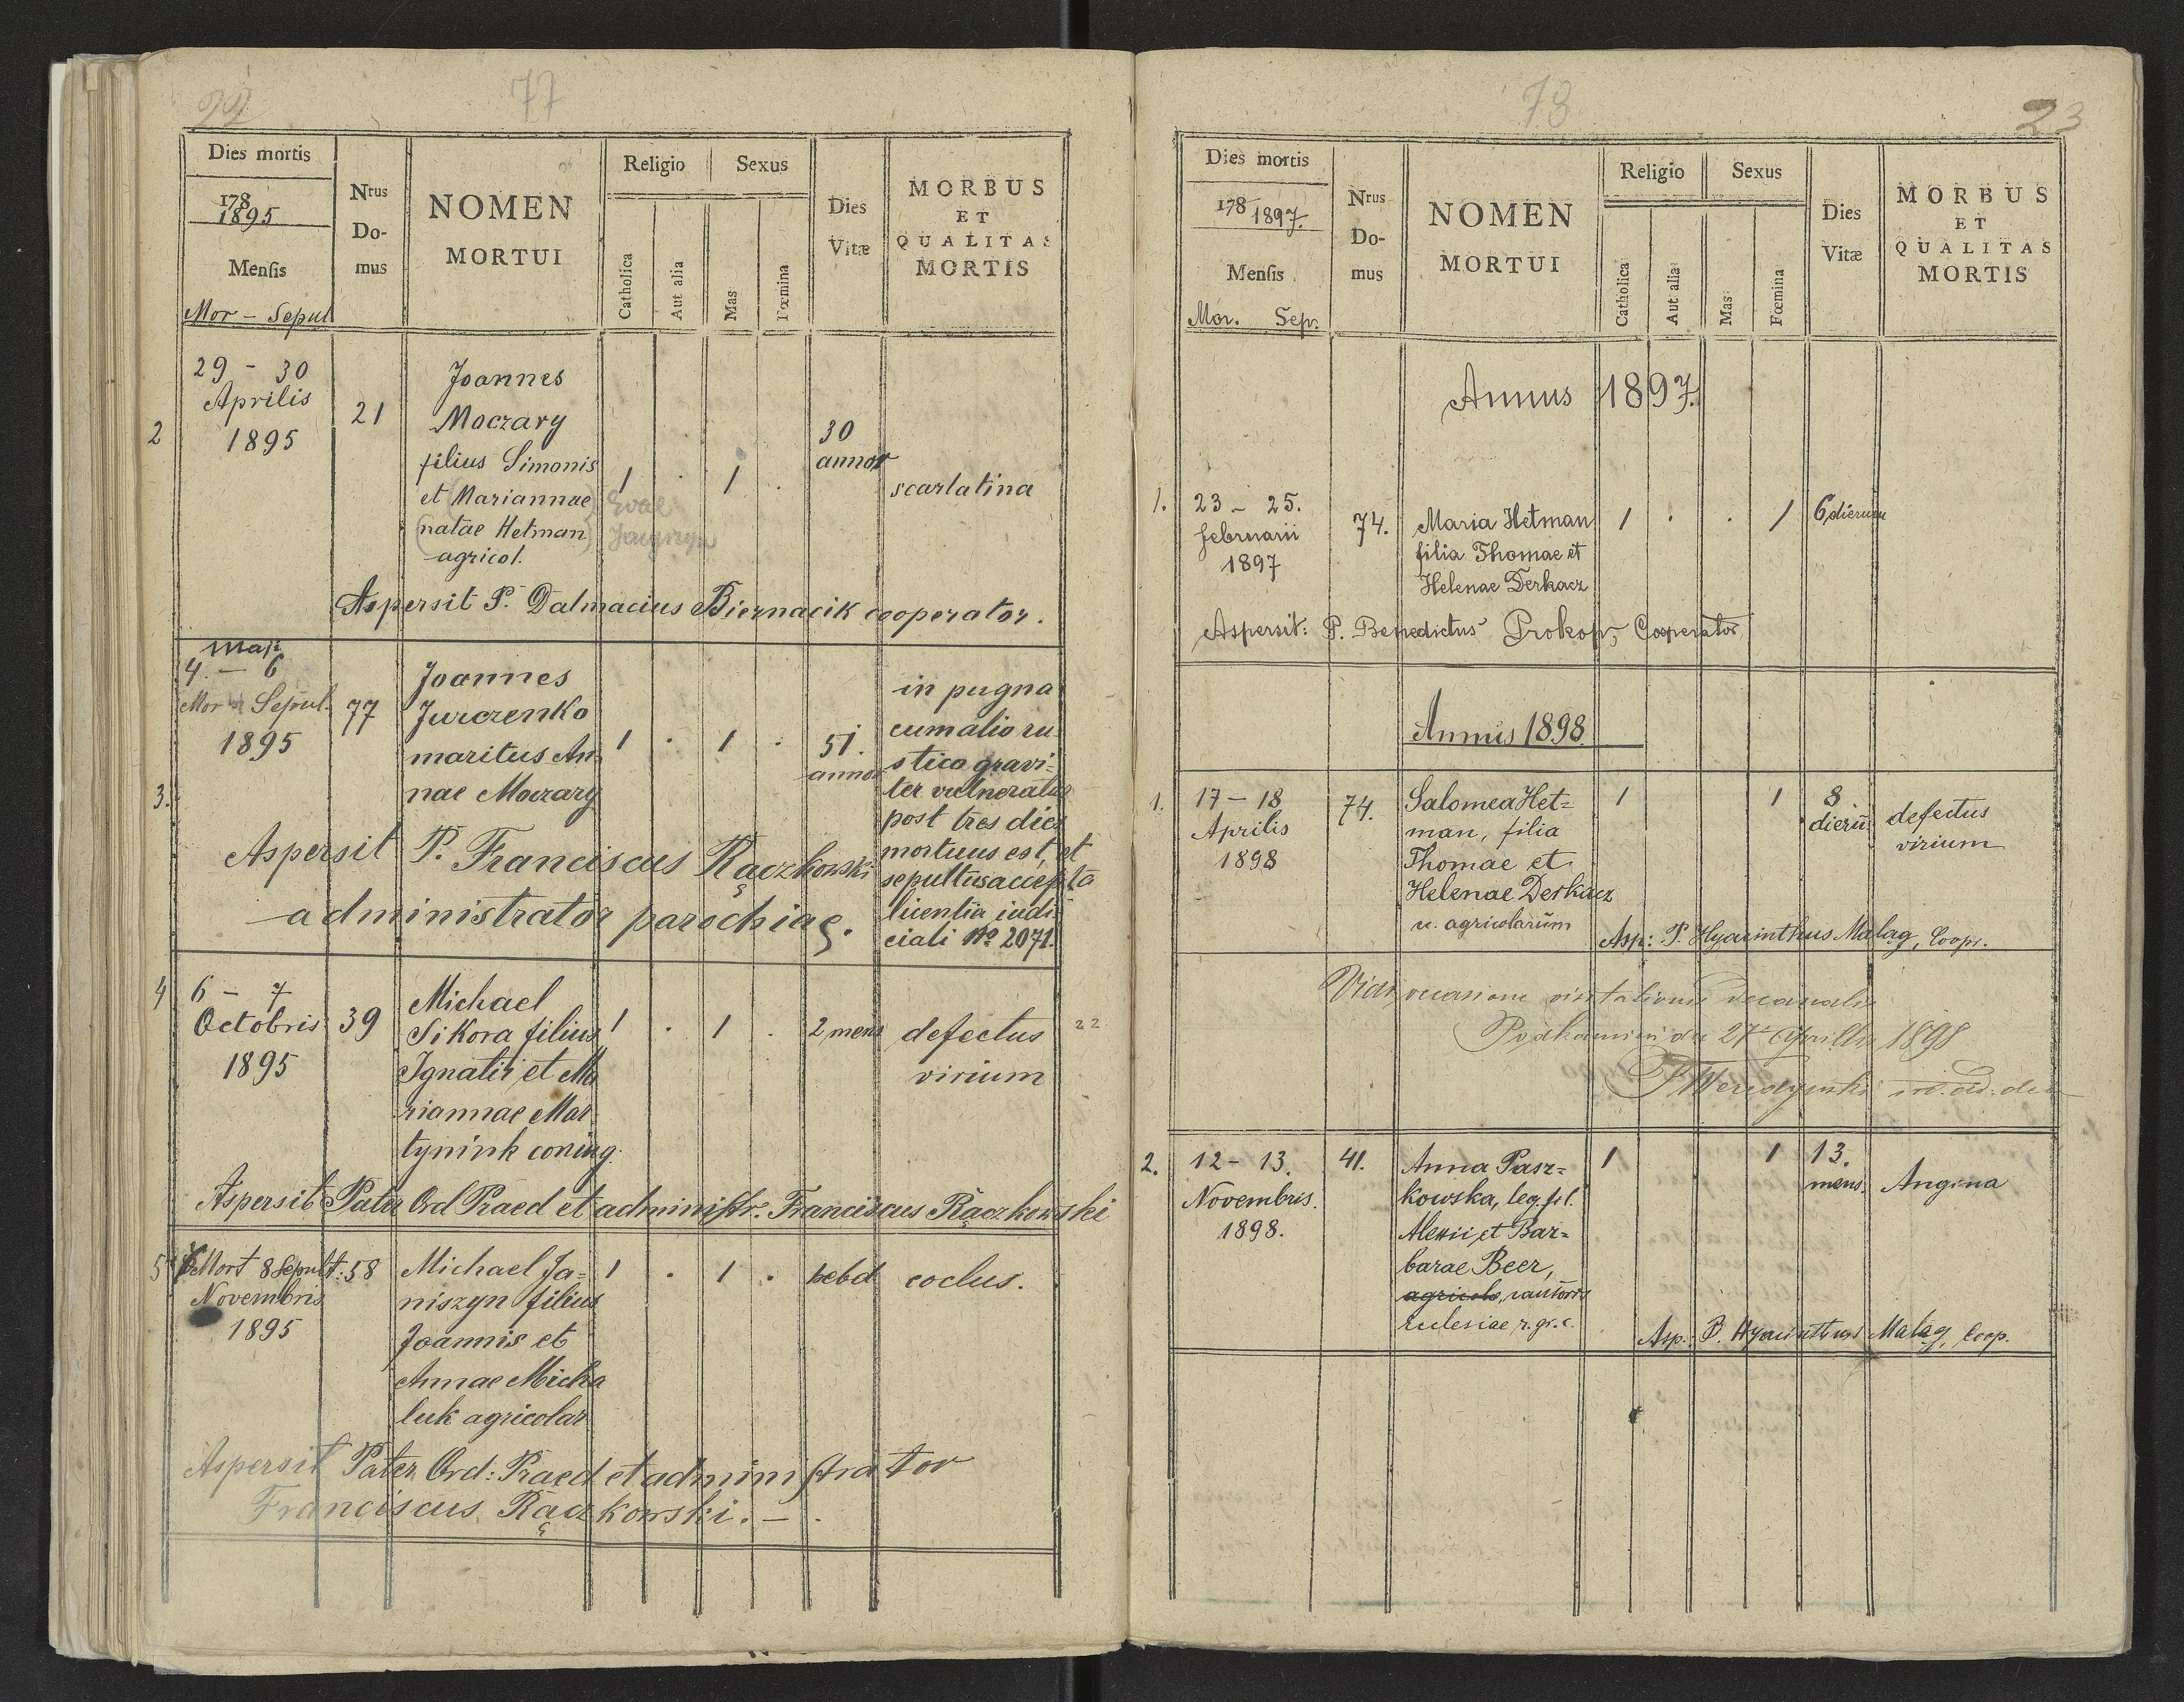 22
77
Dies mortis
Nrus Domus
NOMEN MORTUI
Religio
Sexus
Catholica
Aut alia
Mas
Fœmina
Dies Vitæ
MORBUS ET QUALITAS MORTIS
178
1895
Menſis
Mor - Sepul.
2
29 - 30
Aprilis
1895
21
Joannes
Moczary
filius Simonis
et (Mariannae)
(natae Hetman)
agricol.
Evae
1 . 1 .
30
annor
scarlatina
Aspersit P. Dalmacius Biernacik cooperator.
3.
Maji
4. - 6
Mor Sepul.
1895
77
Joannes
Jurczenko
maritus An-
nae Moczary
1 . 1 .
51.
annor
in pugna
cum alio ru-
stico gravi-
ter vulneratus
post tres dies
mortuus est, et
sepultus accepta
licentia judi-
ciali No 2071.
Aspersit P. Franciscus Rączkowski
administrator parochiae.
4
6 - 7
Octobris
1895
39
Michael
Sikora filius
Ignatii et Ma
riannae Mar
tynink coniug.
1 . 1 .
2 mens
defectus
virium
22
Aspersit Pater Ord Praed et administr. Franciscus Rączkowski
5
Mort 8 Sepult:
Novembris
1895
58
Michael Ja=
niszyn filius
Joannis et
Annae Micha
luk agricolar
1 . 1 .
hebd
coclus.
Aspersit Pater Ord: Praed et administrator
Franciscus Rączkowski. -
78
23
Dies mortis
Nrus Domus
NOMEN MORTUI
Religio
Sexus
Catholica
Aut alia
Mas
Fœmina
Dies Vitæ
MORBUS ET QUALITAS MORTIS
178
1897.
Menſis
Mor. Sep.
Annus 1897.
1.
23 - 25.
februarii
1897
74.
Maria Hetman
filia Thomae et
Helenae Derkacz
1 . . 1
6 dierum
Aspersit: P. Benedictus Prokop, Cooperator
Annus 1898.
1.
17 - 18
Aprilis
1898
74.
Salomea Het=
man, filia
Thomae et
Helenae Derkacz
u. agricolarum
1
1
8
dierū
defectus
virium
Asp: P. Hyacinthus Malag, Coop.
Vidi occasione visitationis decanalis
27 Aprilis 1898
2.
12 - 13.
Novembris.
1898.
41.
Anna Pasz=
kowska, leg. fil.
Alexii et Bar=
barae Beer,
agricolo, cantoris
Eclesiae r. gr. c.
1
1
13.
mens.
Angina
Asp.: P. Hyacinthus Malag, Coop.